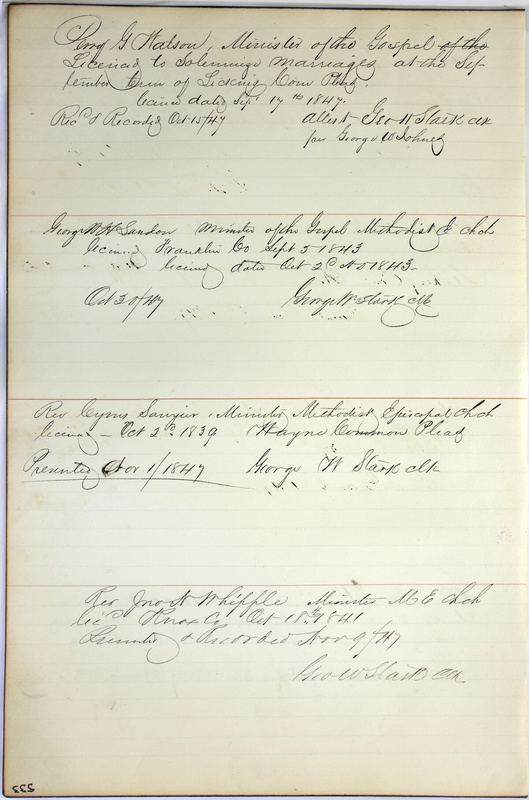 Perry G Watson, Minister of the Gospel of the
Licensed to Solemnize Marriages at the Sep-
tember term of Licking Com Pleas.
license dated Sept 17th 1847.
Recd & Recorded Oct 15/47 attest Geo W Stark clk
per George W Johnes
George W H Sandon Minister of the Gospel Methodist E Chch
licensed Franklin Co Sept 5 1843
license dated Oct 2d AD 1843
Oct 30/47 George W Stark clk
Rev Cyrus Sawyer, Minister Methodist Episcopal Chch
license - Oct 2d 1839 Wayne Common Pleas
Presented Nov 1/1847 George W Stark clk
Rev Jno A Whipple Minister M E Chch
licd Knox Co Oct 18th 1841
Presented & Recorded Nov 9/47
Geo W Stark clk
533